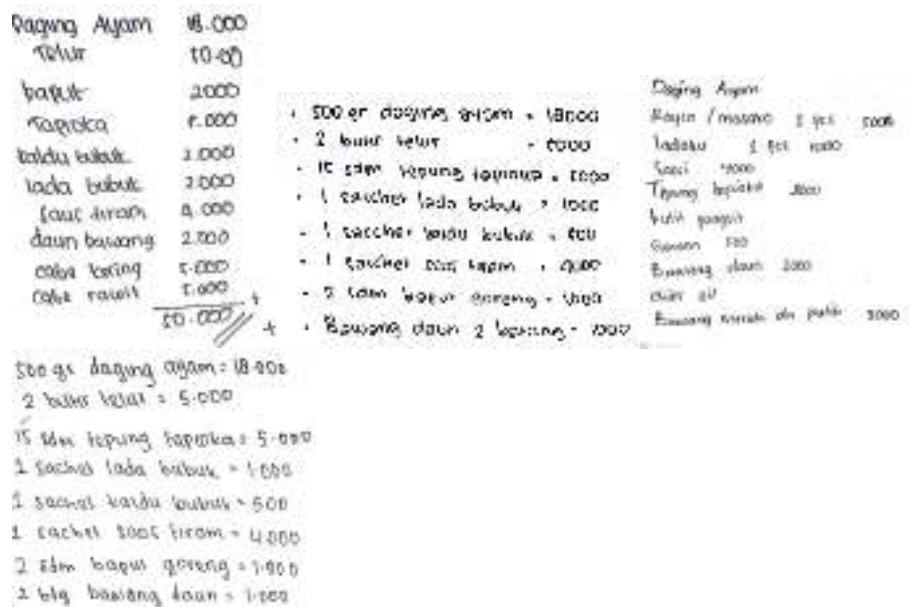 Daging Ayam 18.000
Telur 10.00
baput 2000
Tapioka 5.000
kaldu bubuk 2.000
lada bubuk 2.000
saus tiram 4.000
daun bawang 2.000
cabe kering 5.000
cabe rawit 5.000
50.000
• 500 gr daging ayam = 18000
• 2 butir telur = 5000
• 15 sdm tepung tapioka = 5000
• 1 sacchet lada bubuk = 1000
• 1 sacchet kaldu bubuk = 500
• 1 sacchet saus tiram = 4000
• 2 sdm baput goreng = 1000
• Bawang daun 2 batang = 1000
Daging Ayam
Royco / masako 1 pcs 5000
ladaku 1 pcs 1000
Saori 4000
Tepung tapioka
Bawang daun 2000
Bawang merah dn putih 3000
500 gr daging ayam = 18.000
2 butir telur = 5.000
15 sdm tepung tapioka = 5.000
1 sachet lada bubuk = 1.000
1 sachet kaldu bubuk = 500
1 sachet saos tiram = 4.000
2 sdm baput goreng = 1.000
2 btg bawang daun = 1.000